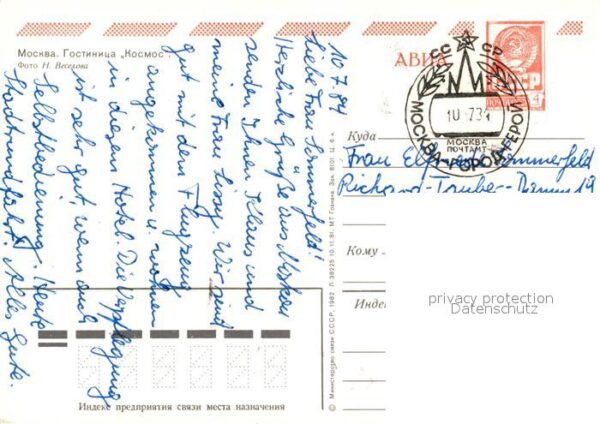 Москва. Гостиница „Космос".
Фото Н. Веселова
АВИА
СССР
ПОЧТА
4
СС СР
10 - 7 3
МОСКВА
ПОЧТАМТ
МОСКВА - ГОРОД-ГЕРОЙ
10.7.84
Liebe Frau Sommerfeld!
Herzliche Grüße aus Moskau
senden Ihnen Klaus und
meine Frau Sissy. Wir sind
gut mit dem Flugzeug
angekommen u. wohnen
in diesem Hotel. Die Verpflegung
ist sehr gut wenn auch
Selbstbedienung. Heute
Stadtrundfahrt. Alles Gute.
Куда
Frau Sommerfeld
Richard-
Кому
Индекс
privacy protection
Datenschutz
Индекс предприятия связи места назначения
© Министерство связи СССР, 1982 Л 38225 10.11.81. МТ Гознака. Зак. 8101 Ц. 6 к.